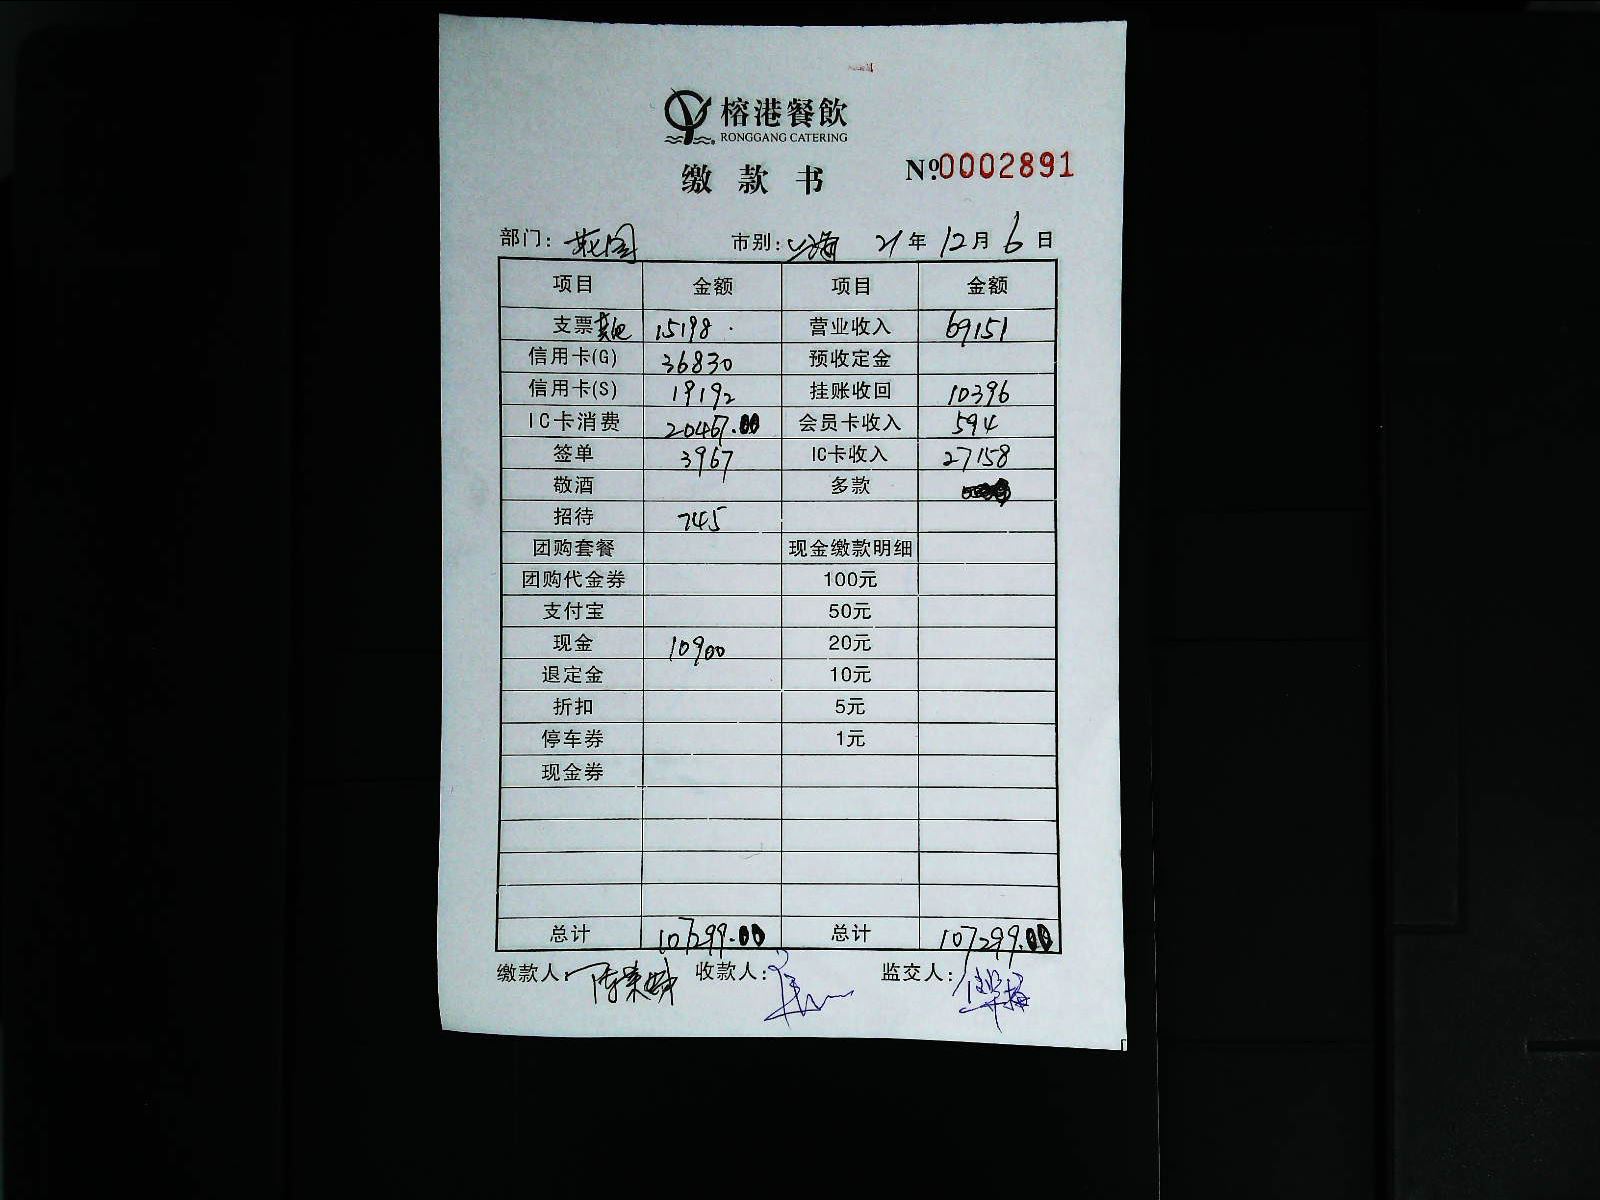 榕港餐飲
RONGGANG CATERING
缴款书 №0002891
部门: 花园 市别: 上海 21年 12月 6日
项目 金额 项目 金额
支票其他 15198. 营业收入 69151
信用卡(G) 36830 预收定金
信用卡(S) 19192 挂账收回 10396
IC卡消费 20467.00 会员卡收入 594
签单 3967 IC卡收入 27158
敬酒 多款
招待 745
团购套餐 现金缴款明细
团购代金券 100元
支付宝 50元
现金 10900 20元
退定金 10元
折扣 5元
停车券 1元
现金券
总计 107299.00 总计 107299.00
缴款人: 收款人: 监交人: